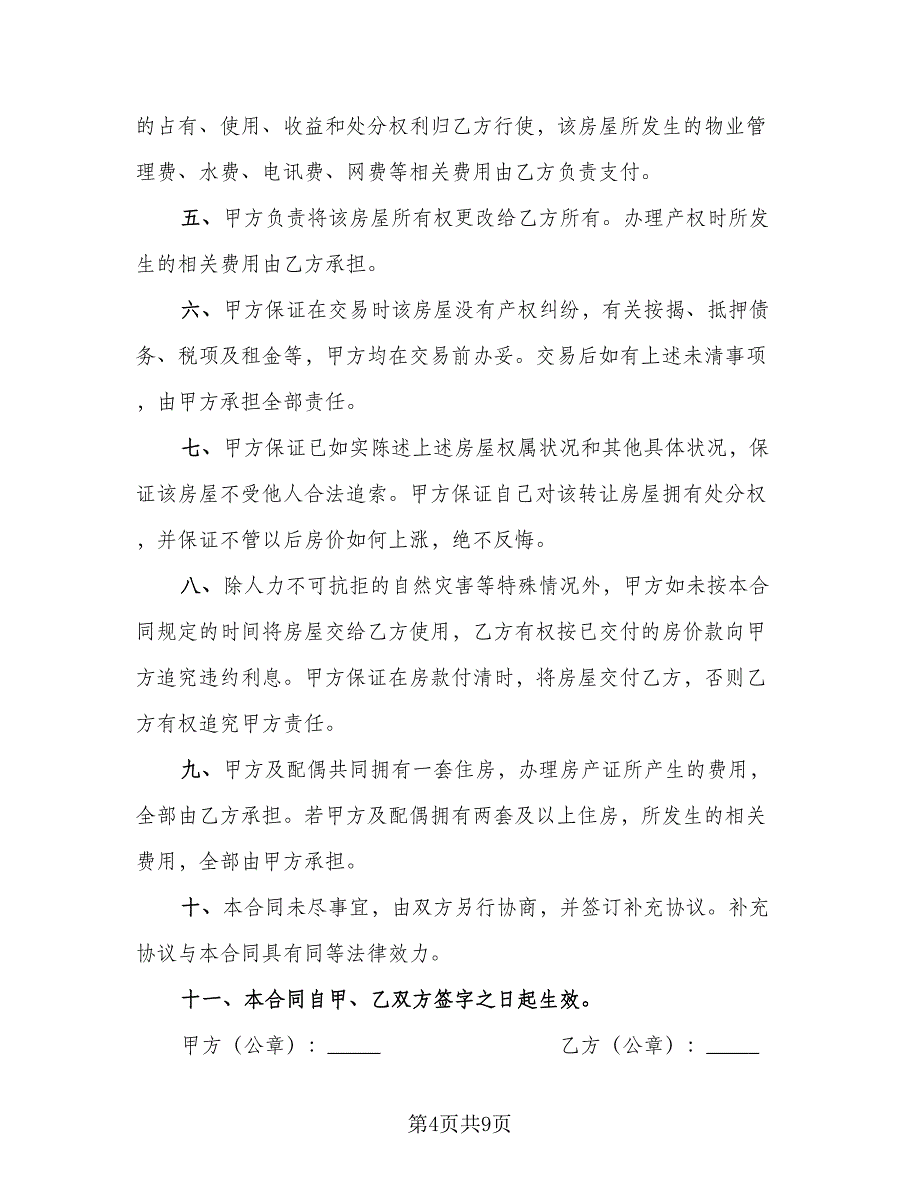 的占有、使用、收益和处分权利归乙方行使，该房屋所发生的物业管
理费、水费、电讯费、网费等相关费用由乙方负责支付。
五、甲方负责将该房屋所有权更改给乙方所有。办理产权时所发
生的相关费用由乙方承担。
六、甲方保证在交易时该房屋没有产权纠纷，有关按揭、抵押债
务、税项及租金等，甲方均在交易前办妥。交易后如有上述未清事项
，由甲方承担全部责任。
七、甲方保证已如实陈述上述房屋权属状况和其他具体状况，保
证该房屋不受他人合法追索。甲方保证自己对该转让房屋拥有处分权
，并保证不管以后房价如何上涨，绝不反悔。
八、除人力不可抗拒的自然灾害等特殊情况外，甲方如未按本合
同规定的时间将房屋交给乙方使用，乙方有权按已交付的房价款向甲
方追究违约利息。甲方保证在房款付清时，将房屋交付乙方，否则乙
方有权追究甲方责任。
九、甲方及配偶共同拥有一套住房，办理房产证所产生的费用，
全部由乙方承担。若甲方及配偶拥有两套及以上住房，所发生的相关
费用，全部由甲方承担。
十、本合同未尽事宜，由双方另行协商，并签订补充协议。补充
协议与本合同具有同等法律效力。
十一、本合同自甲、乙双方签字之日起生效。
甲方（公章）：_____ 乙方（公章）：_____
第4页共9页